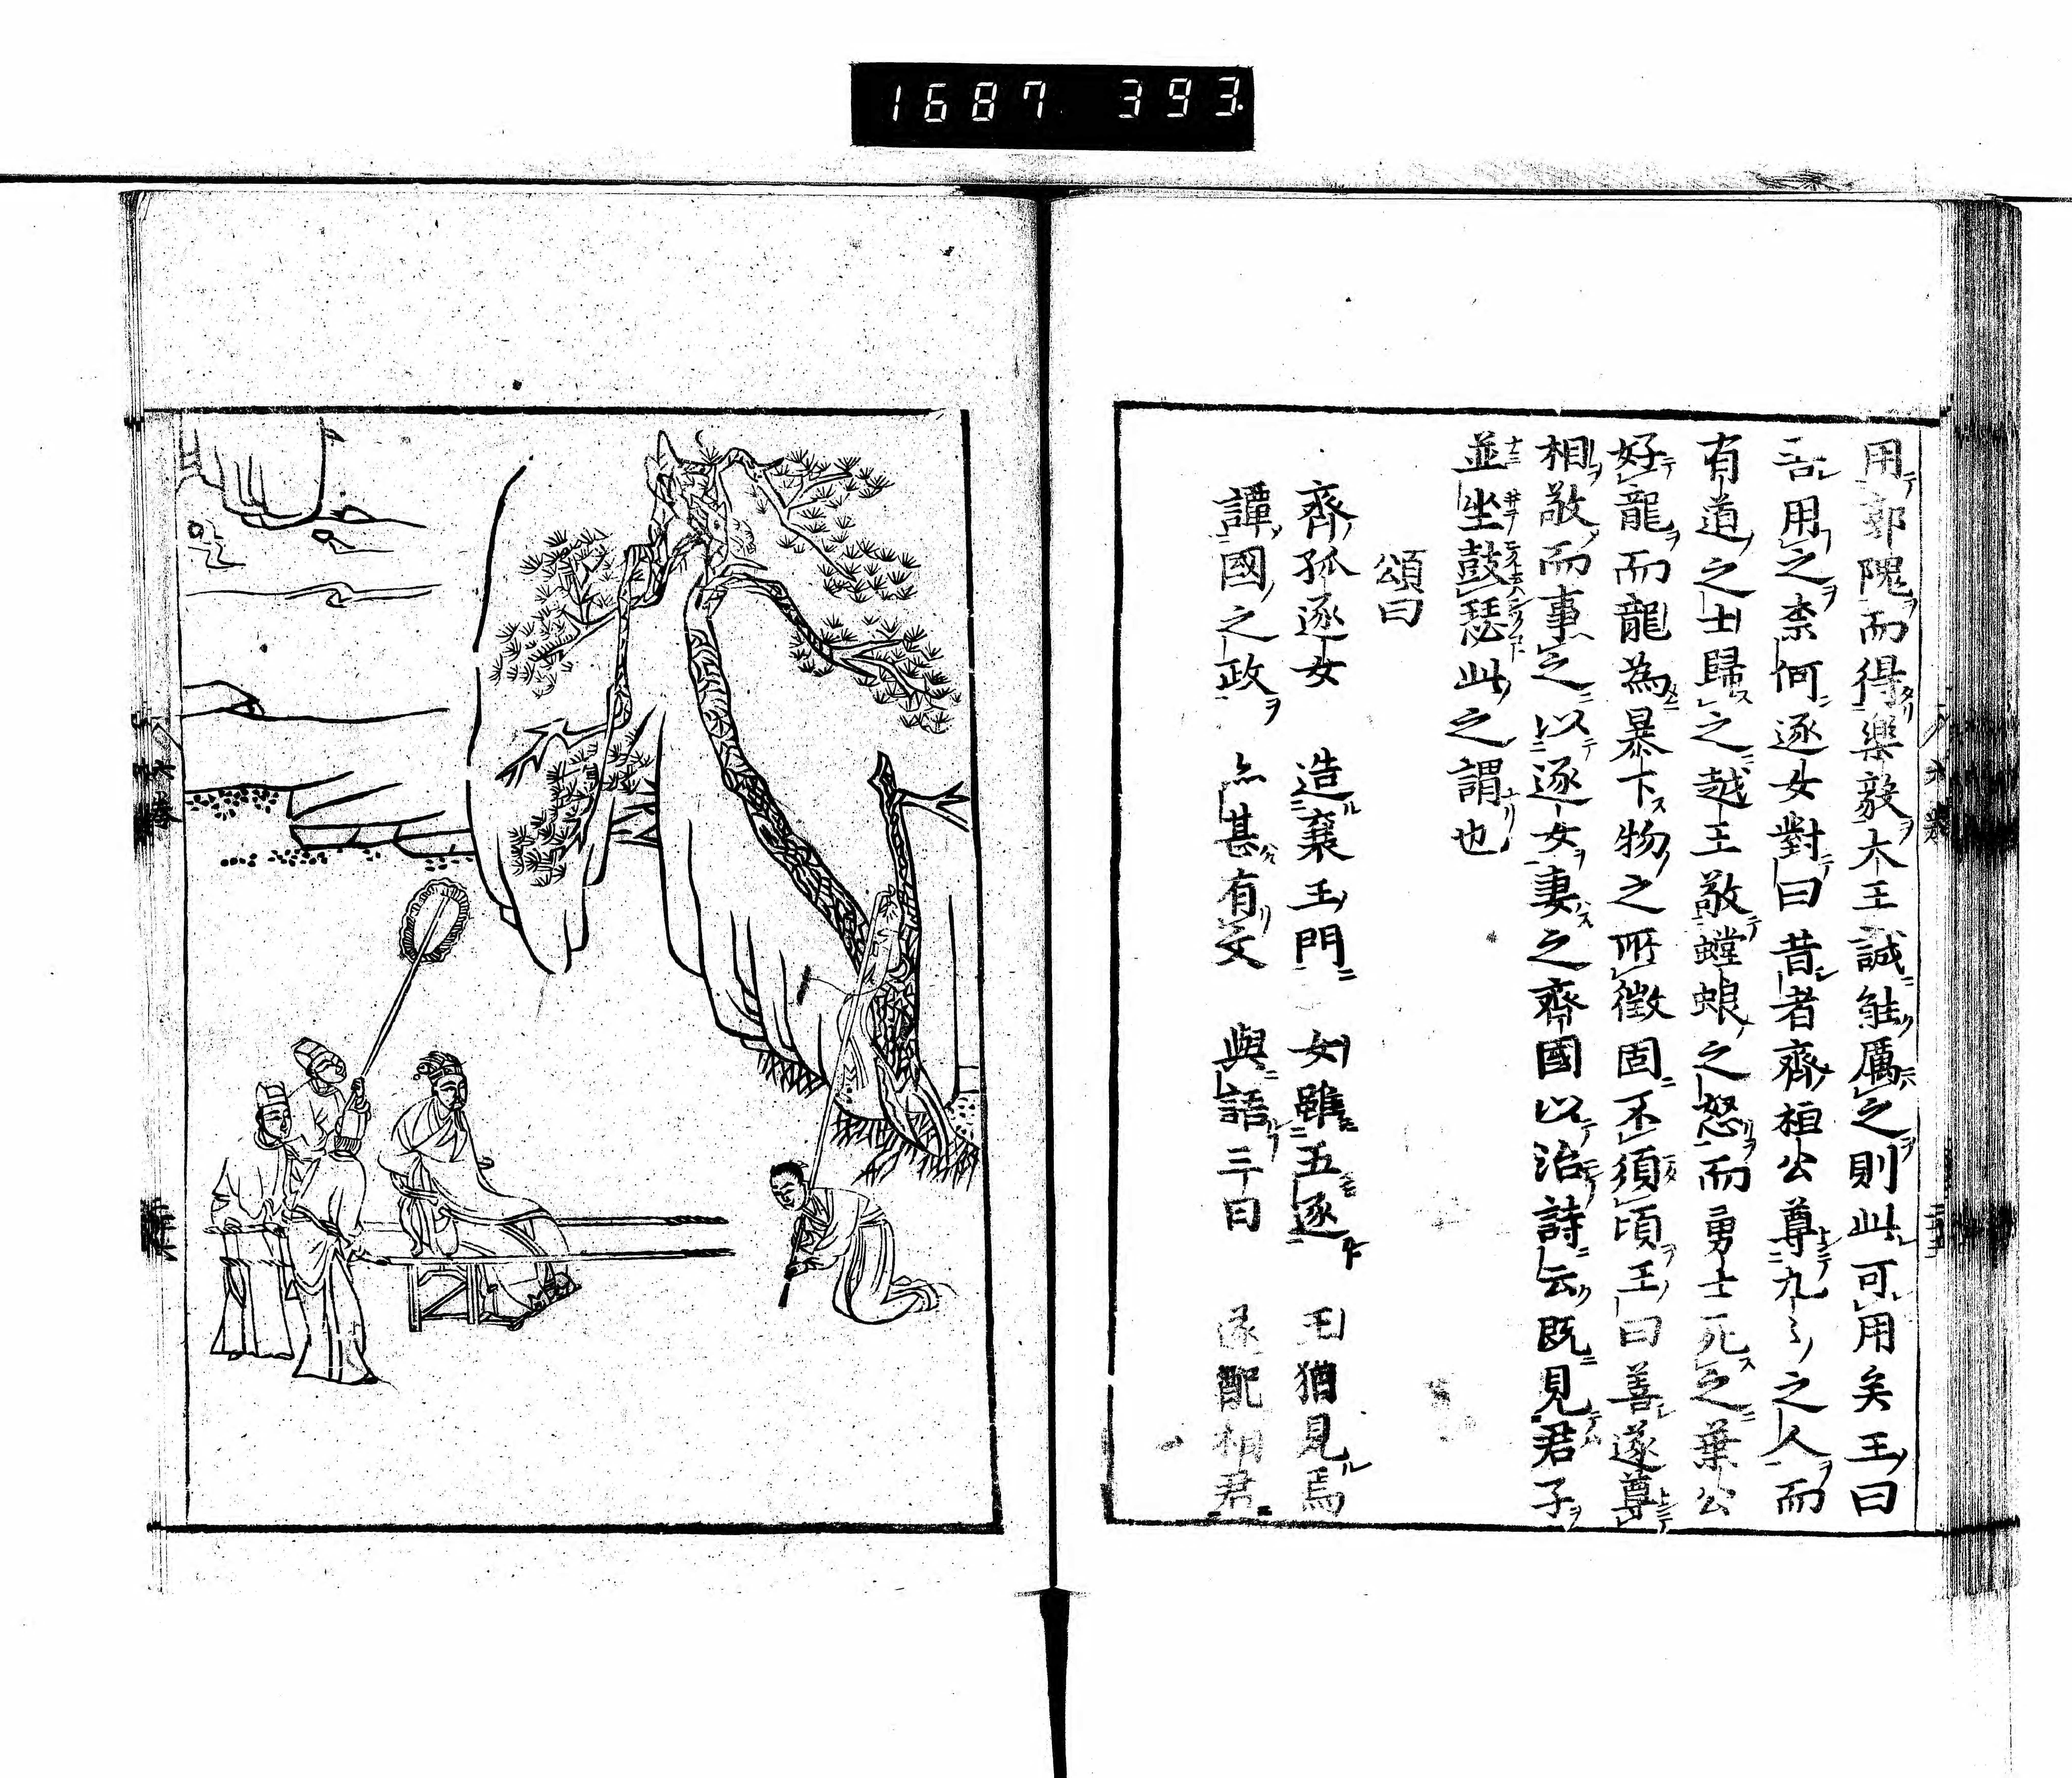 1687 393
用郭隗而得樂毅大王誠能厲之則此可用矣王曰
吾用之柰何逐女對曰昔者齊桓公尊九〻之人而
有道之士歸之越王敬螳蜋之怒而勇士死之葉公
好龍而龍為暴下物之所徵固不須頃王曰善遂尊
相敬而事之以逐女妻之齊國以治詩云既見君子
並坐鼓瑟此之謂也
頌曰
齊孤逐女 造襄王門 女雖五逐 王猶見焉
譚國之政 亦甚有文 與語三日 遂配相君